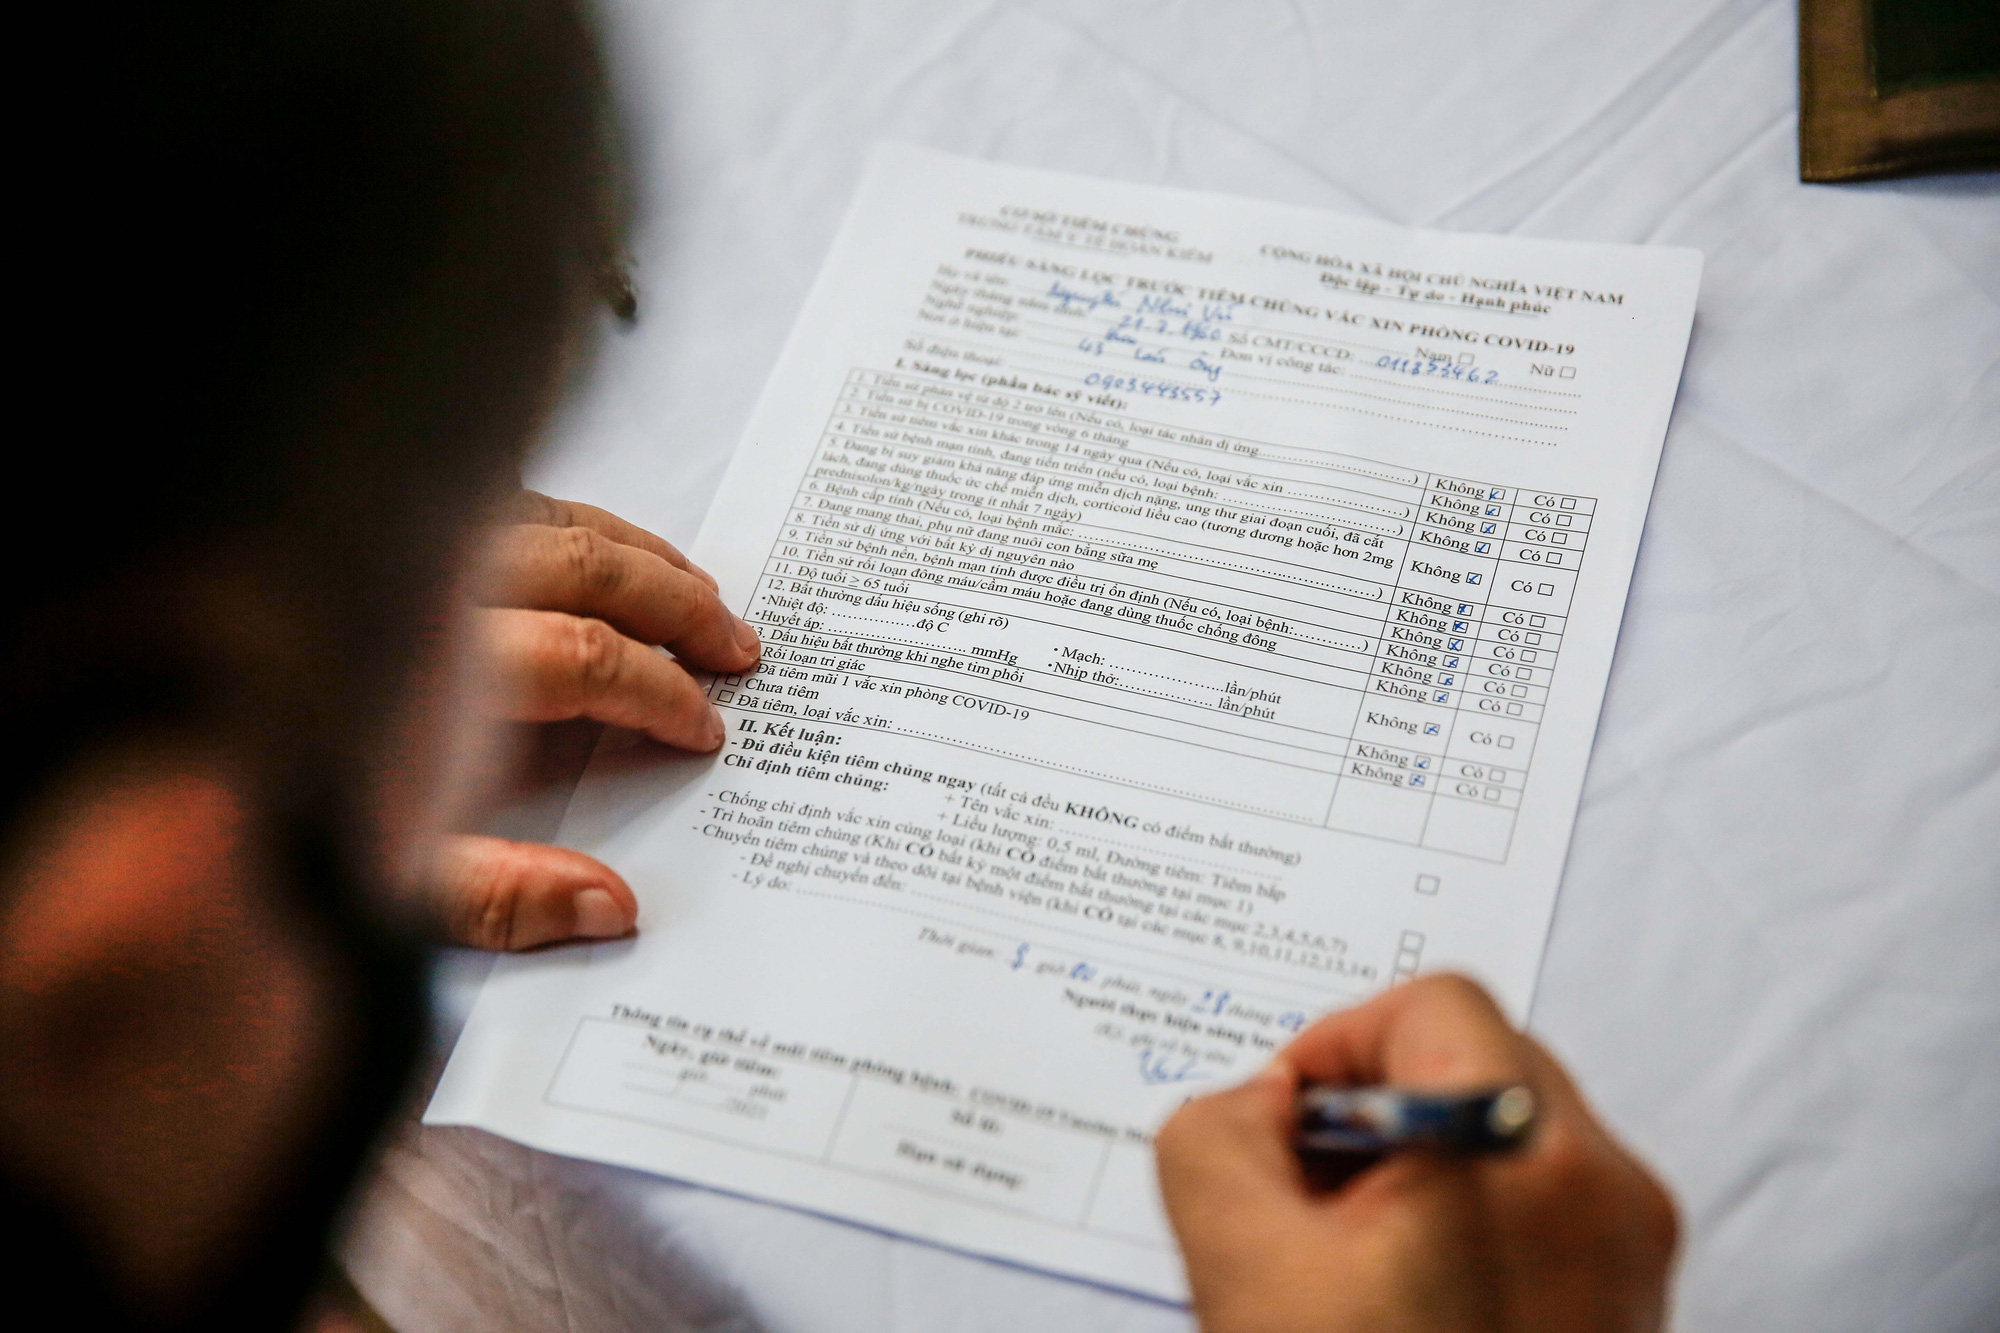 CƠ SỞ TIÊM CHỦNG
TRUNG TÂM Y TẾ HOÀN KIẾM
CỘNG HÒA XÃ HỘI CHỦ NGHĨA VIỆT NAM
Độc lập - Tự do - Hạnh phúc
PHIẾU SÀNG LỌC TRƯỚC TIÊM CHỦNG VẮC XIN PHÒNG COVID-19
Họ và tên: Nguyễn Như Nam □ Nữ □
Ngày tháng năm sinh: Số CMT/CCCD: 011355462
Nghề nghiệp: Đơn vị công tác:
Nơi ở hiện tại: 45 Ông
Số điện thoại: 0903443557
I. Sàng lọc (phần bác sỹ viết):
1. Tiền sử phản vệ từ độ 2 trở lên (Nếu có, loại tác nhân dị ứng..............) Không ☑ Có □
2. Tiền sử bị COVID-19 trong vòng 6 tháng Không ☑ Có □
3. Tiền sử tiêm vắc xin khác trong 14 ngày qua (Nếu có, loại vắc xin ..............) Không ☑ Có □
4. Tiền sử bệnh mạn tính, đang tiến triển (nếu có, loại bệnh: ..............) Không ☑ Có □
5. Đang bị suy giảm khả năng đáp ứng miễn dịch nặng, ung thư giai đoạn cuối, đã cắt
lách, đang dùng thuốc ức chế miễn dịch, corticoid liều cao (tương đương hoặc hơn 2mg
prednisolon/kg/ngày trong ít nhất 7 ngày) Không ☑ Có □
6. Bệnh cấp tính (Nếu có, loại bệnh mắc: ..............) Không ☑ Có □
7. Đang mang thai, phụ nữ đang nuôi con bằng sữa mẹ Không ☑ Có □
8. Tiền sử dị ứng với bất kỳ dị nguyên nào Không ☑ Có □
9. Tiền sử bệnh nền, bệnh mạn tính được điều trị ổn định (Nếu có, loại bệnh:..............) Không ☑ Có □
10. Tiền sử rối loạn đông máu/cầm máu hoặc đang dùng thuốc chống đông Không ☑ Có □
11. Độ tuổi ≥ 65 tuổi Không ☑ Có □
12. Bất thường dấu hiệu sống (ghi rõ) Không ☑ Có □
•Nhiệt độ: ..............độ C • Mạch: ..............lần/phút
•Huyết áp: .............. mmHg •Nhịp thở:.............. lần/phút
3. Dấu hiệu bất thường khi nghe tim phổi Không ☑ Có □
Rối loạn tri giác Không ☑ Có □
Đã tiêm mũi 1 vắc xin phòng COVID-19
□ Chưa tiêm
□ Đã tiêm, loại vắc xin: ..............
II. Kết luận:
- Đủ điều kiện tiêm chủng ngay (tất cả đều KHÔNG có điểm bất thường) □
Chỉ định tiêm chủng: + Tên vắc xin: ..............
+ Liều lượng: 0,5 ml, Đường tiêm: Tiêm bắp
- Chống chỉ định vắc xin cùng loại (khi CÓ điểm bất thường tại mục 1) □
- Trì hoãn tiêm chủng (Khi CÓ bất kỳ một điểm bất thường tại các mục 2,3,4,5,6,7) □
- Chuyển tiêm chủng và theo dõi tại bệnh viện (khi CÓ tại các mục 8, 9,10,11,12,13,14) □
- Đề nghị chuyển đến: ..............
- Lý do: ..............
Thời gian: 8 giờ 00 phút, ngày 28 tháng
Người thực hiện sàng lọc
Thông tin cụ thể về mũi tiêm phòng bệnh: COVID-19 Vaccine
Ngày, giờ tiêm:
giờ phút
/ /2021
Số lô:
Hạn sử dụng: